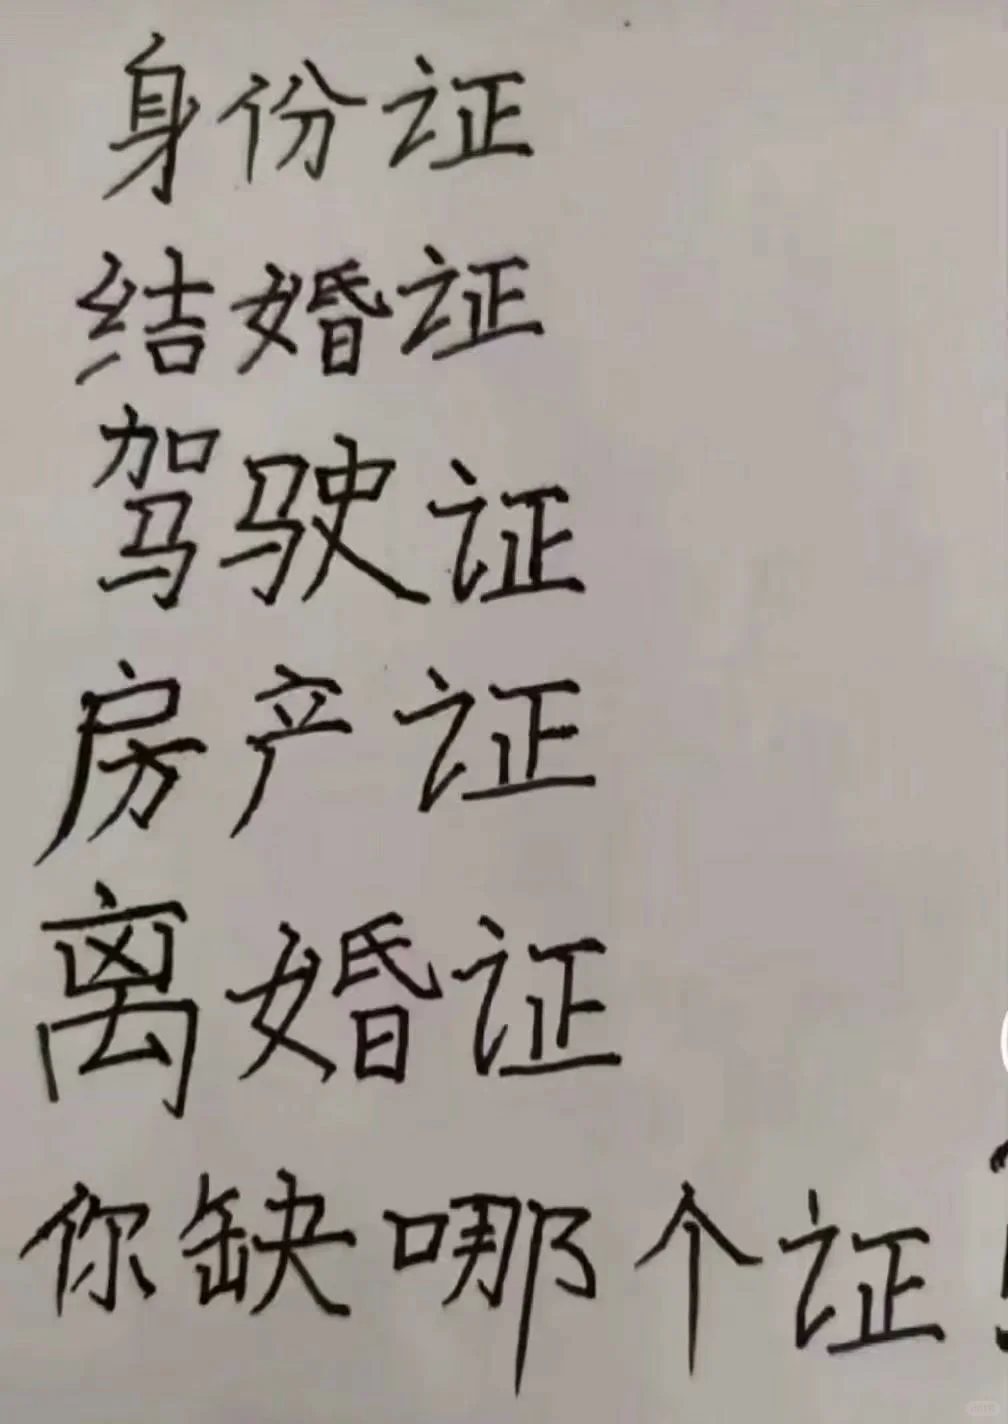 身份证
结婚证
驾驶证
房产证
离婚证
你缺哪个证？